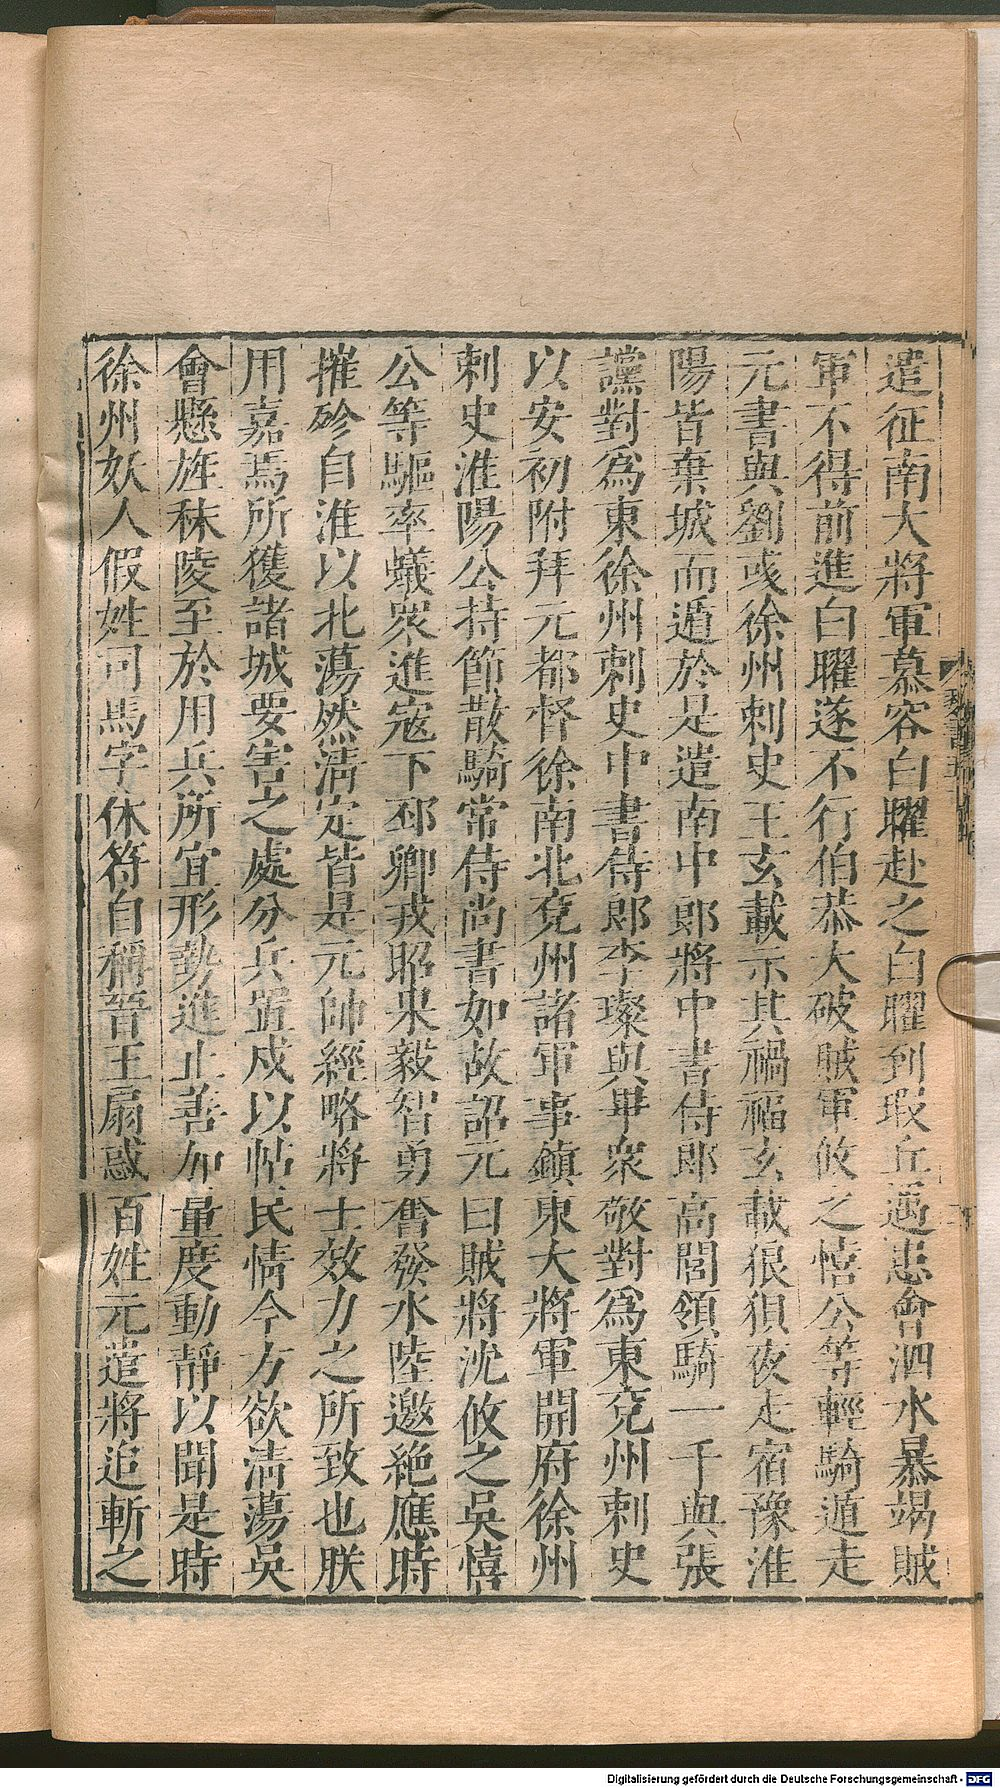 遣征南大將軍慕容白曜赴之白曜到瑕丘遇患會泗水暴竭賊
軍不得前進白曜遂不行伯恭大破賊軍攸之憘公等輕騎遁走
元書與劉彧徐州刺史王玄載示其禍福玄載狼狽夜走宿豫淮
陽皆棄城而遁於是遣南中郎將中書侍郎高閭領騎一千與張
讜對為東徐州刺史中書侍郎李璨與畢衆敬對為東兗州刺史
以安初附拜元都督徐南北兗州諸軍事鎮東大將軍開府徐州
刺史淮陽公持節散騎常侍尚書如故詔元曰賊將沈攸之吳憘
公等驅率蟻衆進寇下邳卿戎昭果毅智勇奮發水陸邀絕應時
摧殄自淮以北蕩然清定皆是元帥經略將士效力之所致也朕
用嘉焉所獲諸城要害之處分兵置戍以帖民情今方欲清蕩吳
會懸旌秣陵至於用兵所宜形勢進止善加量度動靜以聞是時
徐州妖人假姓司馬字休符自稱晉王扇惑百姓元遣將追斬之
Digitalisierung gefördert durch die Deutsche Forschungsgemeinschaft - DFG